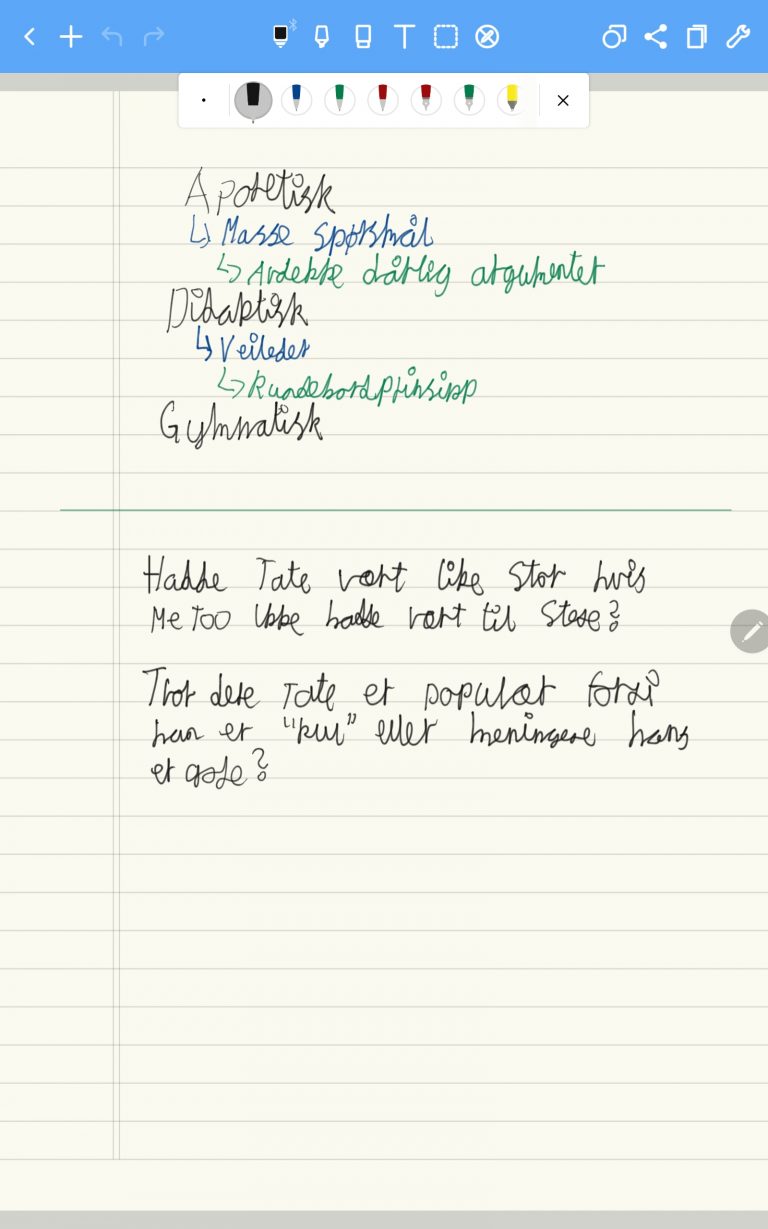 Aporetisk
↳ Masse spørsmål
↳ Avdekke dårlig argumenter
Didaktisk
↳ Veileder
↳ Rundebordprinsipp
Gymnatisk
Hadde Tate vært like stor hvis
Me Too ikke hadde vært til stede?
Tror dere Tate er populær fordi
han er "kul" eller meningene hans
er gode?